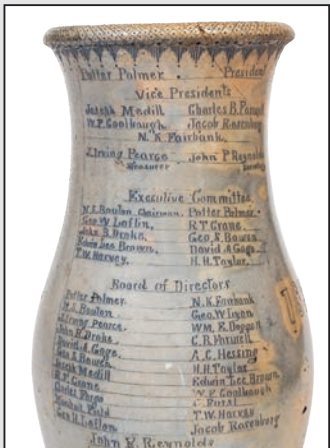 Potter Palmer . President
Vice Presidents
Joseph Medill Charles B.
W.F. Coolbaugh Jacob Rosenberg
N. K Fairbank
J. Irving Pearce John P Reynolds
Treasurer Secretary
Executive Committee
N.S. Bouton Chairman. Potter Palmer.
Geo W Laflin. R T Crane.
John B Drake. Geo. S. Bowen
Edwin Lee Brown. David A Gage.
T.W. Harvey. H.H. Taylor.
Board of Directors
Potter Palmer. N. K Fairbank
N.S. Bouton Geo. W
J. Irving Pearce. W.M. E Doggett
John B Drake. C. B. Farwell
David A Gage. A. C. Hessing
Geo S Bowen H.H. Taylor
Joseph Medill Edwin Lee Brown
R.T. Crane W F Coolbaugh
Charles Fargo C.
Marshall Field T.W. Harvey
Geo H. Laflin Jacob Rosenberg
John P. Reynolds